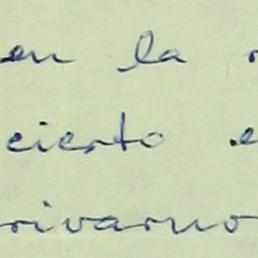 en la
cierto e
rivarno